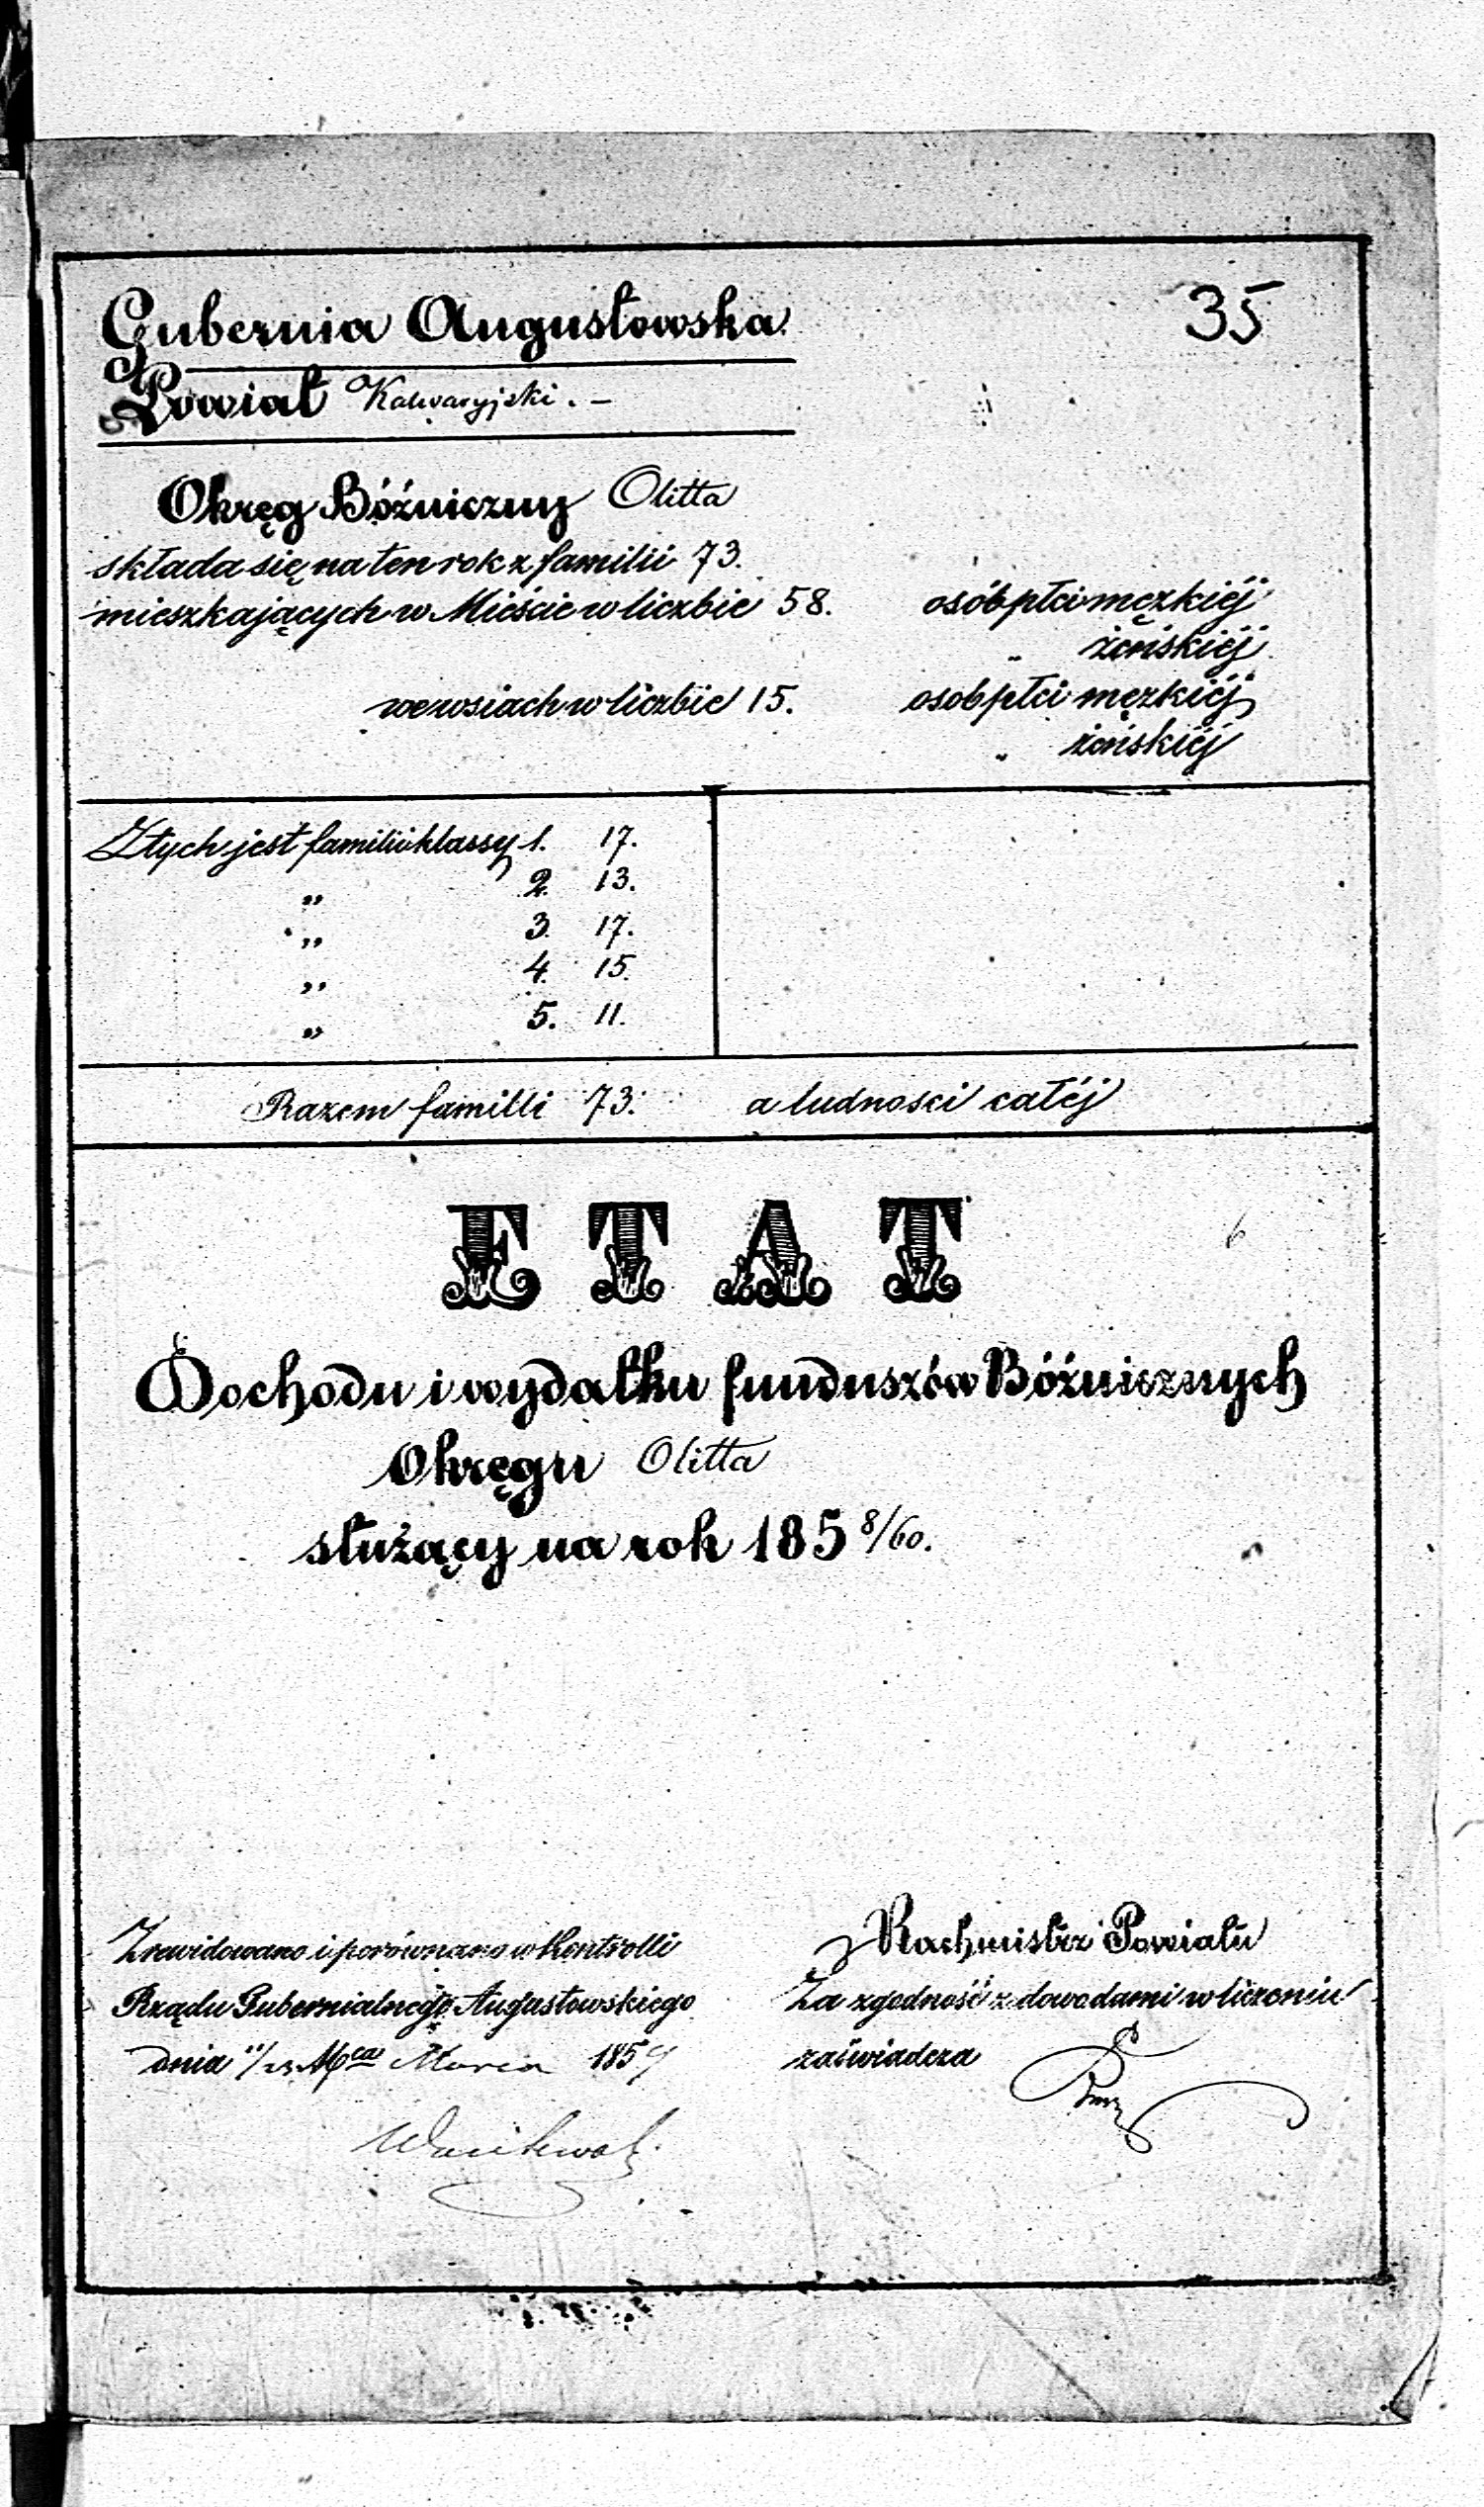 35
Gubernia Augustowska
Powiat Kalwaryjski. –
Okręg Bóźniczny Olitta
składa się na ten rok z familii 73.
mieszkających w Mieście w liczbie 58. osób płci męzkiéj
„ żeńskiéj
we wsiach w liczbie 15. osob płci męzkiéj
„ żeńskiéj
Z tych jest familii klassy 1. 17.
„ 2. 13.
„ 3. 17.
„ 4. 15.
„ 5. 11.
Razem familli 73. a ludnosci całéj
ETAT
Dochodu i wydatku funduszów Bóźnicznych
Okręgu Olitta
służący na rok 185 8/60.
Zrewidowano i porównano w Kontrolli
Rządu Gubernialnego Augustowskiego
dnia 11/23 Mca Marca 185
Rachmistrz Powiatu
Za zgodność z dowodami w liczeniu
zaświadcza